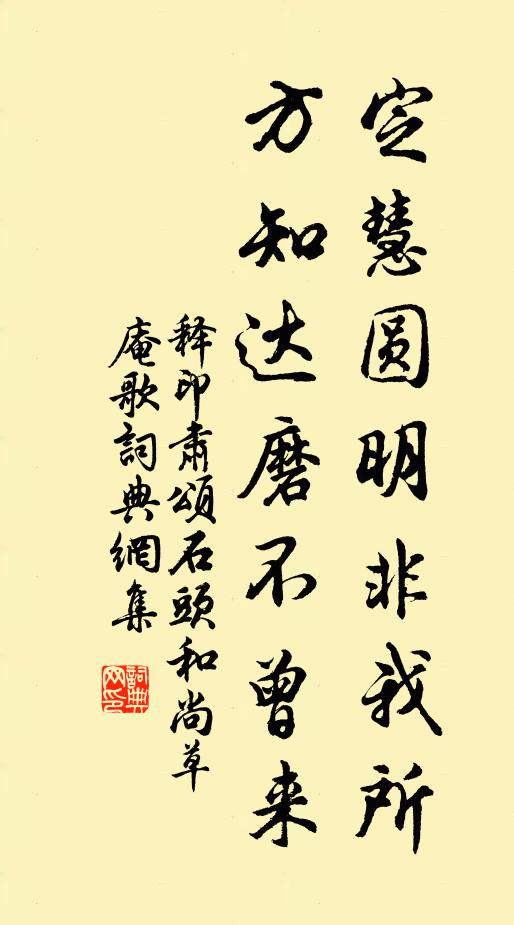 定慧圆明非我所
方知达磨不曾来
释印肃頌石頭和尚草
庵歌詞典網集
詞典
网印